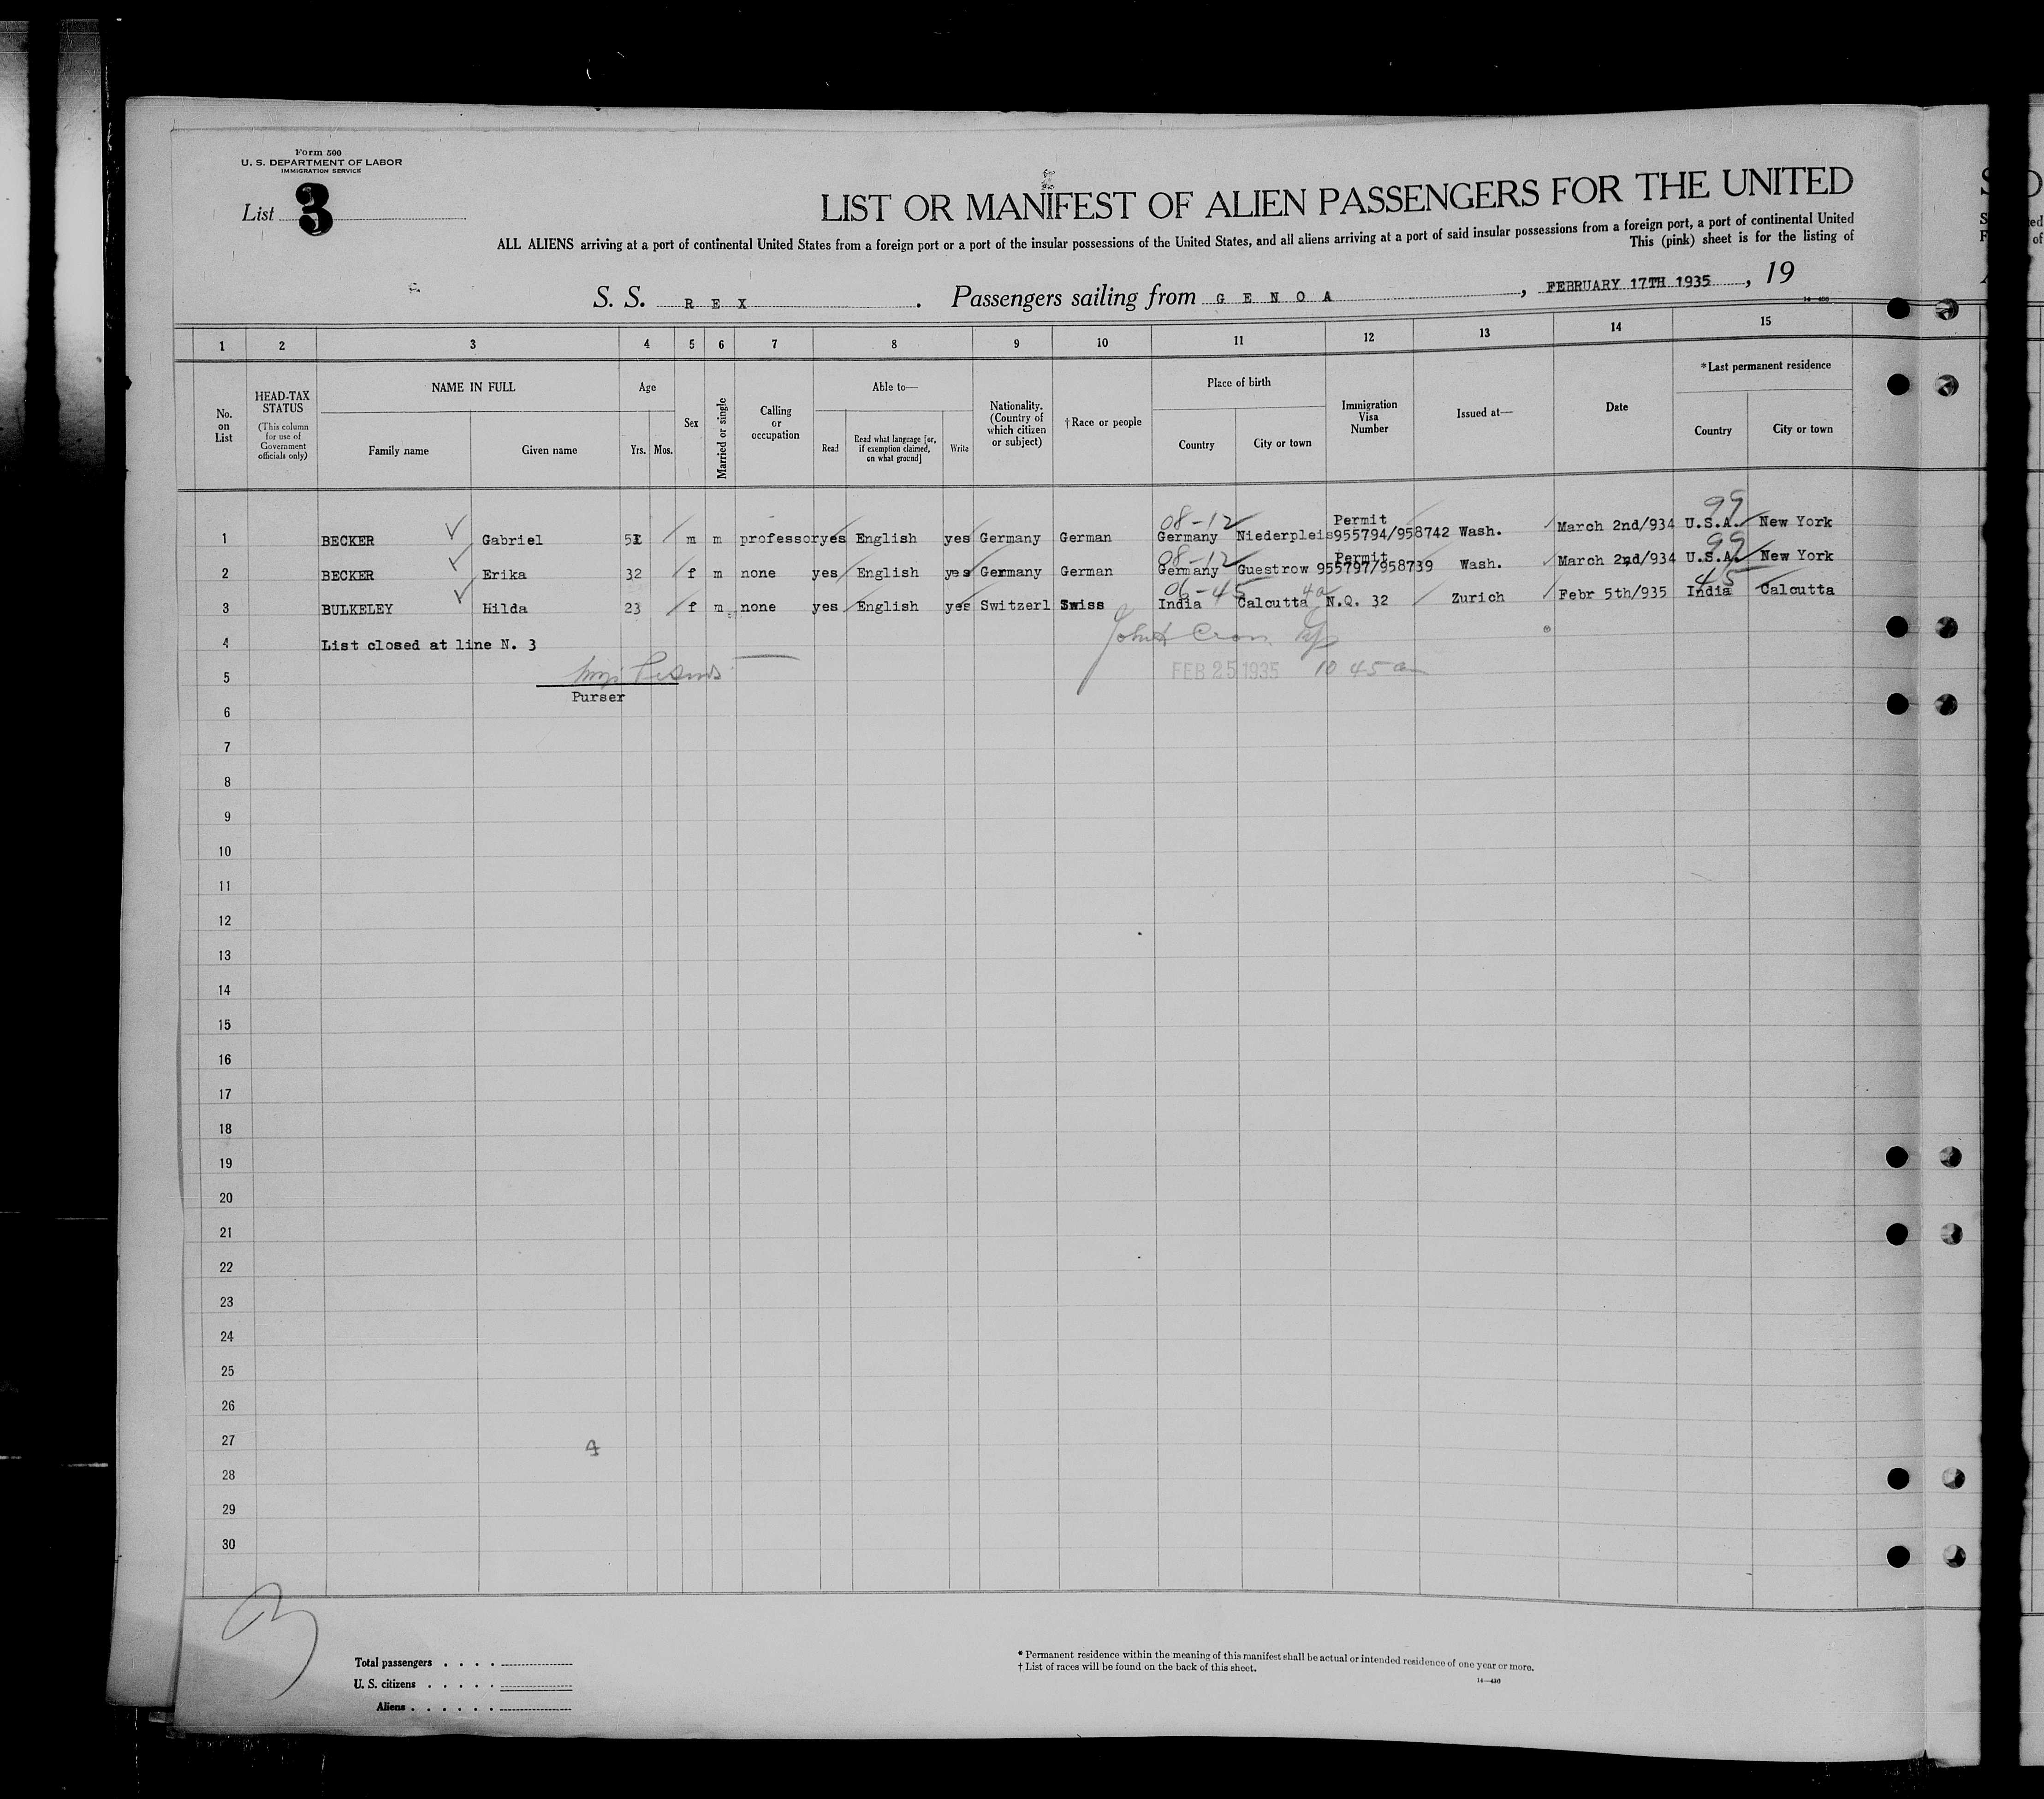 Form 500
U. S. DEPARTMENT OF LABOR
IMMIGRATION SERVICE
List 3
LIST OR MANIFEST OF ALIEN PASSENGERS FOR THE UNITED
ALL ALIENS arriving at a port of continental United States from a foreign port or a port of the insular possessions of the United States, and all aliens arriving at a port of said insular possessions from a foreign port, a port of continental United
This (pink) sheet is for the listing of
S. S. R E X . Passengers sailing from G E N O A , FEBRUARY 17TH 1935 , 19
1 2 3 4 5 6 7 8 9 10 11 12 13 14 15
No. on List
HEAD-TAX STATUS
(This column for use of Government officials only)
NAME IN FULL
Family name Given name
Age
Yrs. Mos.
Sex
Married or single
Calling or occupation
Able to—
Read Read what language [or, if exemption claimed, on what ground] Write
Nationality. (Country of which citizen or subject)
†Race or people
Place of birth
Country City or town
Immigration Visa Number
Issued at—
Date
*Last permanent residence
Country City or town
08-12 Permit 99
1 BECKER Gabriel 51 m m professor yes English yes Germany German Germany Niederpleis 955794/958742 Wash. March 2nd/934 U.S.A. New York
08-12 Permit 99
2 BECKER Erika 32 f m none yes English yes Germany German Germany Guestrow 955797/958739 Wash. March 2nd/934 U.S.A. New York
06-45 45
3 BULKELEY Hilda 23 f m none yes English yes Switzerl Swiss India Calcutta N.Q. 32 Zurich Febr 5th/935 India Calcutta
4 List closed at line N. 3
5 FEB 25 1935 10 45 am
Purser
6
7
8
9
10
11
12
13
14
15
16
17
18
19
20
21
22
23
24
25
26
27 4
28
29
30
3
Total passengers . . . .
U. S. citizens . . . . .
Aliens . . . . . .
* Permanent residence within the meaning of this manifest shall be actual or intended residence of one year or more.
† List of races will be found on the back of this sheet.
14—430